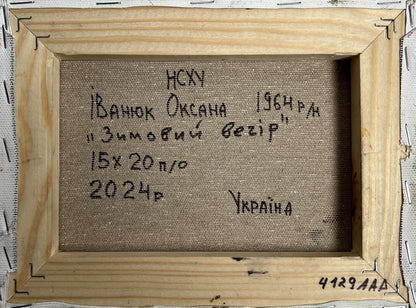 НСХУ
Іванюк Оксана 1964 р/н
"Зимовий вечір"
15x20 п/о
2024р
Україна
4129ААД